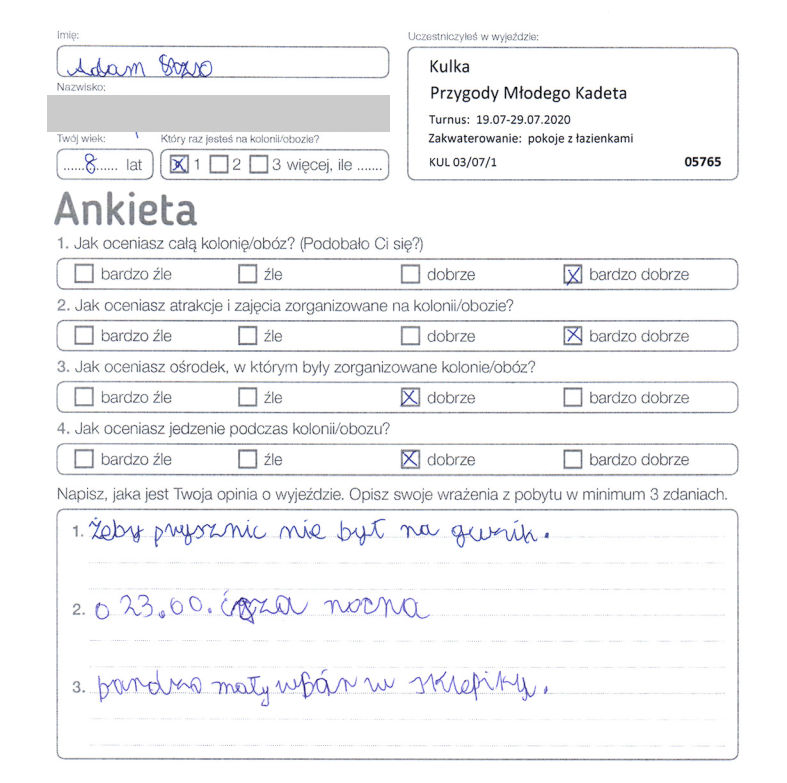 Imię:
Adam
Nazwisko:
Twój wiek:
Który raz jesteś na kolonii/obozie?
......8...... lat
1 2 3 więcej, ile .......
Uczestniczyłeś w wyjeździe:
Kulka
Przygody Młodego Kadeta
Turnus: 19.07-29.07.2020
Zakwaterowanie: pokoje z łazienkami
KUL 03/07/1 05765
Ankieta
1. Jak oceniasz całą kolonię/obóz? (Podobało Ci się?)
bardzo źle źle dobrze bardzo dobrze
2. Jak oceniasz atrakcje i zajęcia zorganizowane na kolonii/obozie?
bardzo źle źle dobrze bardzo dobrze
3. Jak oceniasz ośrodek, w którym były zorganizowane kolonie/obóz?
bardzo źle źle dobrze bardzo dobrze
4. Jak oceniasz jedzenie podczas kolonii/obozu?
bardzo źle źle dobrze bardzo dobrze
Napisz, jaka jest Twoja opinia o wyjeździe. Opisz swoje wrażenia z pobytu w minimum 3 zdaniach.
1. Żeby prysznic nie był na guzik.
2. o 23.00. nocna
3. mały w sklepiky.